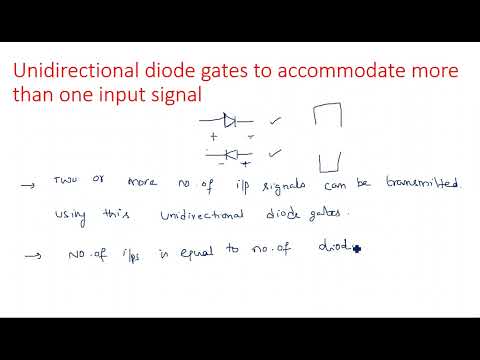 Unidirectional diode gates to accommodate more
than one input signal
+ -
- +
→ Two or more no.of i/p signals can be transmitted
using this unidirectional diode gates.
→ No.of i/ps is equal to no.of diod